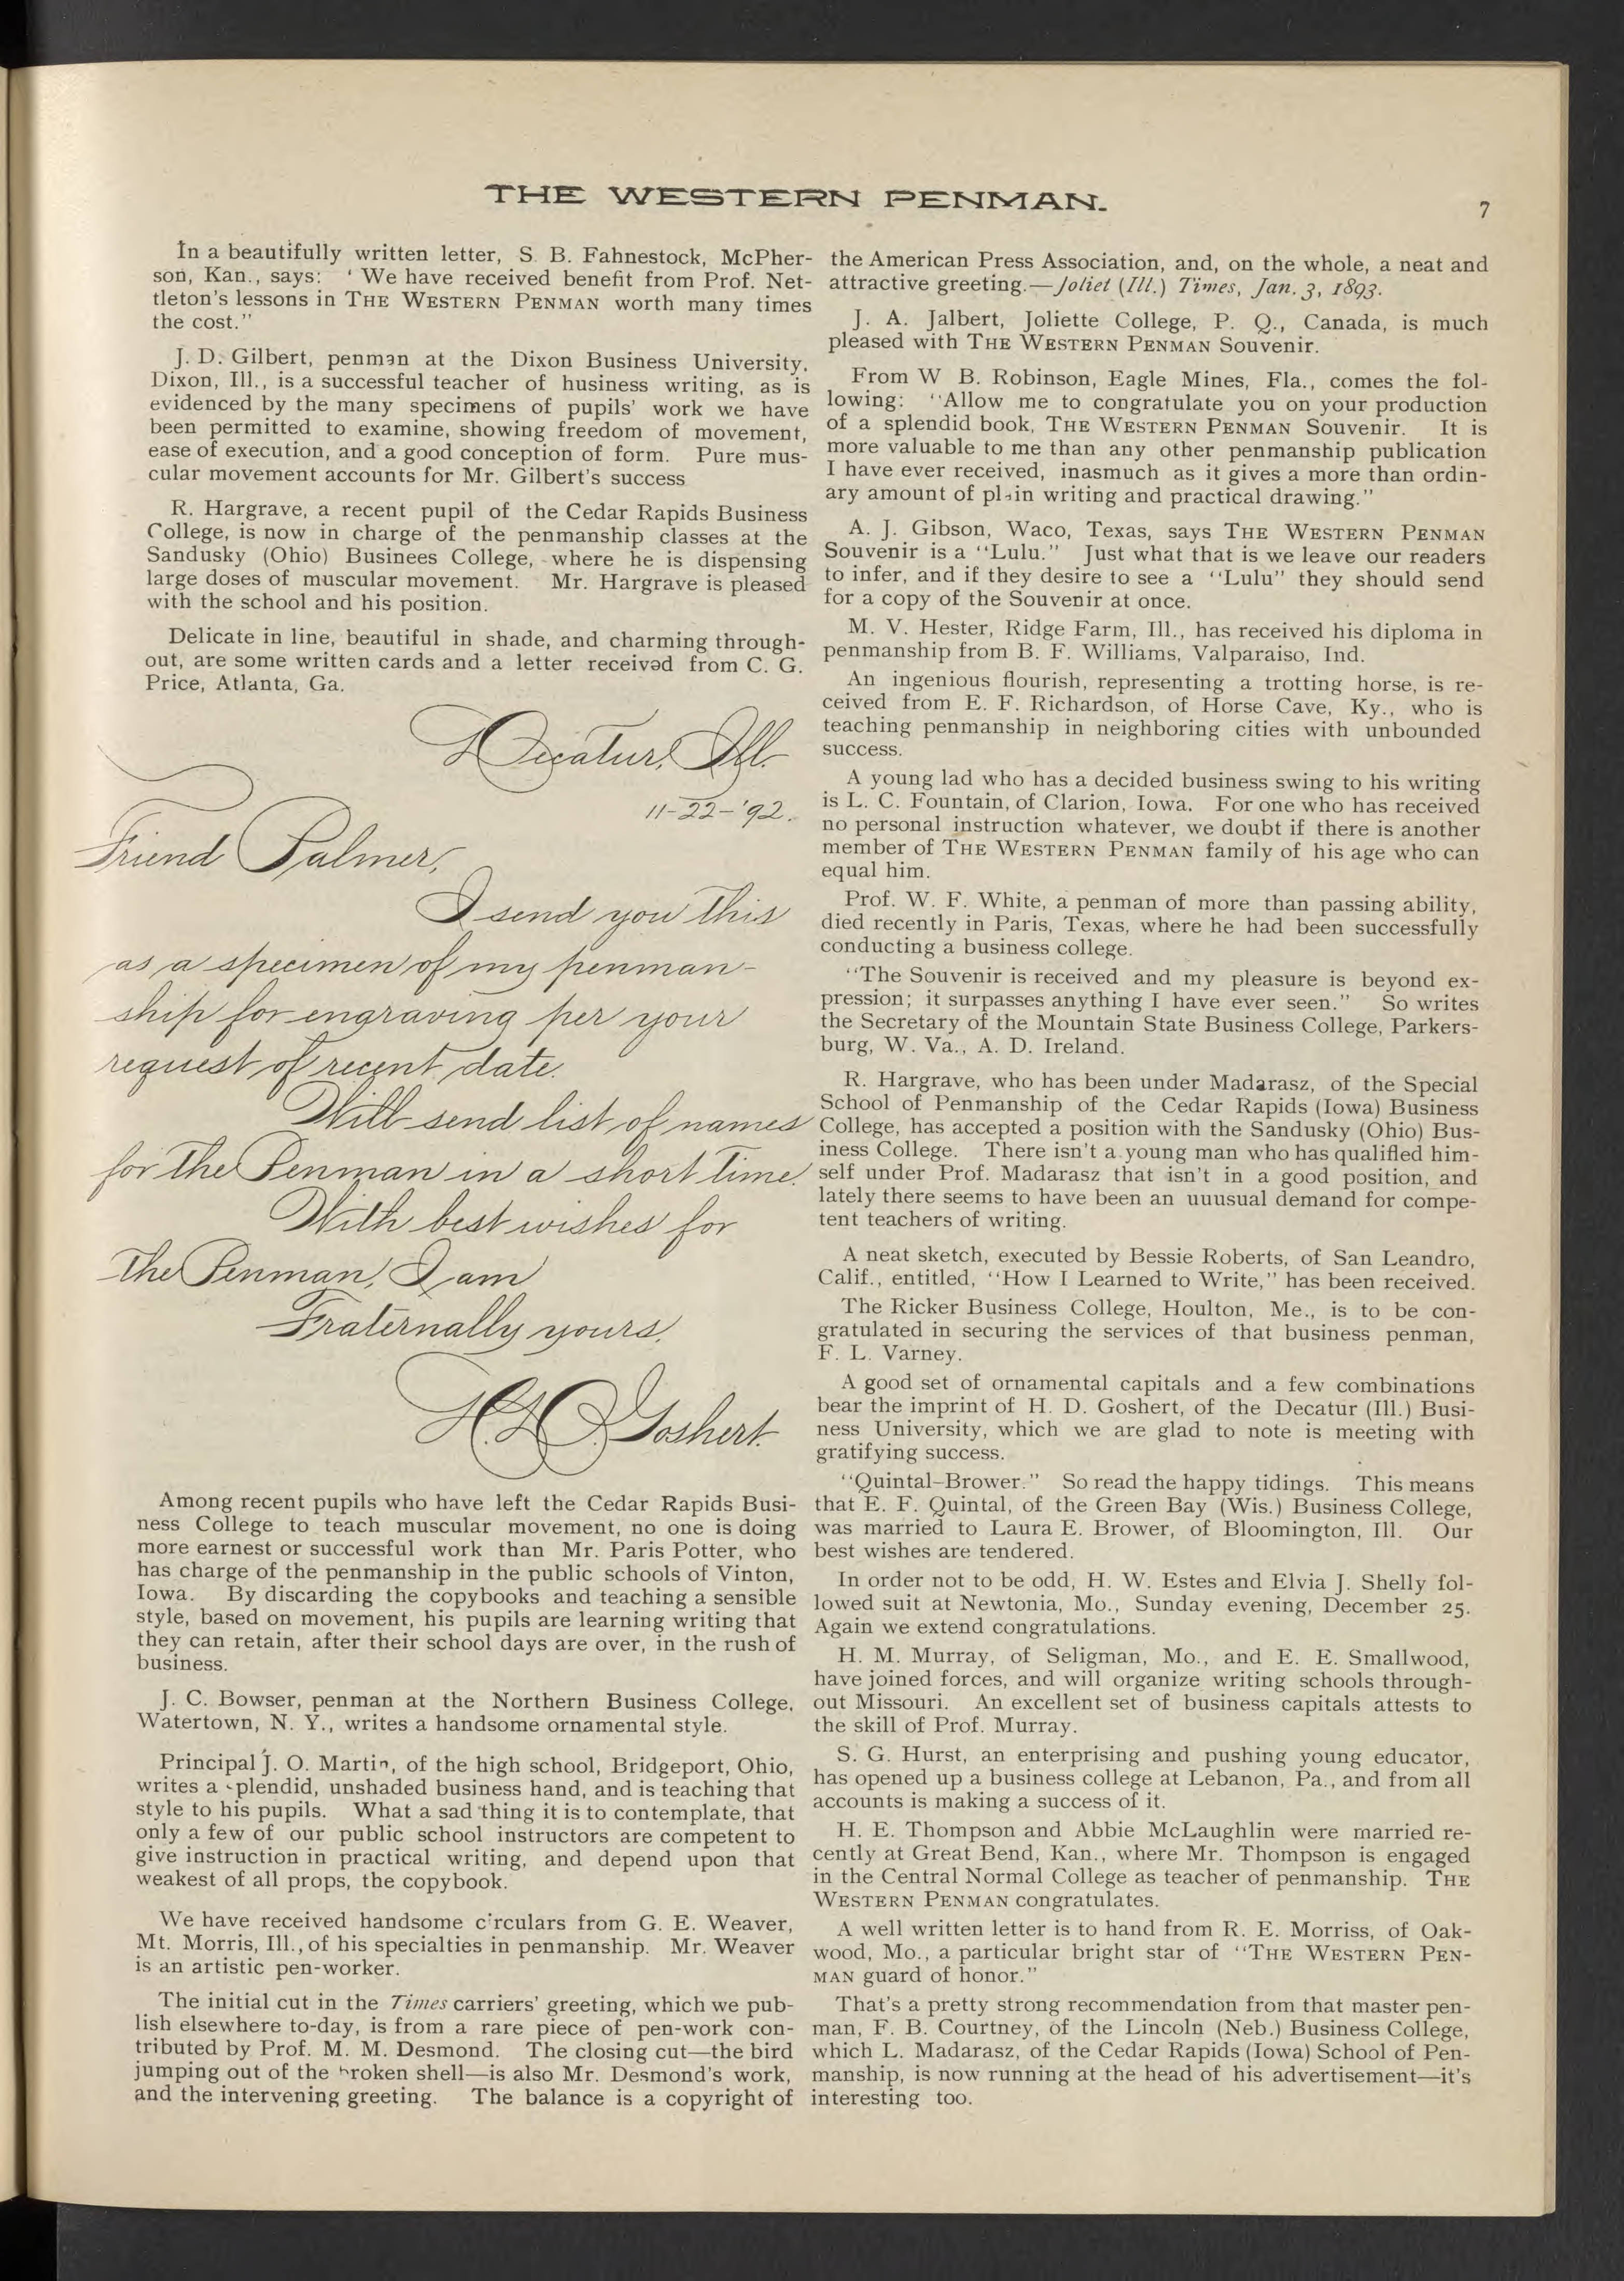 THE WESTERN PENMAN.
7
In a beautifully written letter, S. B. Fahnestock, McPher-
son, Kan., says: ‘ We have received benefit from Prof. Net-
tleton's lessons in THE WESTERN PENMAN worth many times
the cost.”
J. D. Gilbert, penman at the Dixon Business University,
Dixon, Ill., is a successful teacher of husiness writing, as is
evidenced by the many specimens of pupils' work we have
been permitted to examine, showing freedom of movement,
ease of execution, and a good conception of form. Pure mus-
cular movement accounts for Mr. Gilbert's success
R. Hargrave, a recent pupil of the Cedar Rapids Business
College, is now in charge of the penmanship classes at the
Sandusky (Ohio) Businees College, where he is dispensing
large doses of muscular movement. Mr. Hargrave is pleased
with the school and his position.
Delicate in line, beautiful in shade, and charming through-
out, are some written cards and a letter received from C. G.
Price, Atlanta, Ga.
Decatur, Ill.
11-22-'92.
Friend Palmer,
I send you this
as a specimen of my penman-
ship for engraving per your
request of recent date.
Will send list of names
for the Penman in a short time.
With best wishes for
the Penman, I am
Fraternally yours,
H. D. Goshert.
Among recent pupils who have left the Cedar Rapids Busi-
ness College to teach muscular movement, no one is doing
more earnest or successful work than Mr. Paris Potter, who
has charge of the penmanship in the public schools of Vinton,
Iowa. By discarding the copybooks and teaching a sensible
style, based on movement, his pupils are learning writing that
they can retain, after their school days are over, in the rush of
business.
J. C. Bowser, penman at the Northern Business College,
Watertown, N. Y., writes a handsome ornamental style.
Principal J. O. Martin, of the high school, Bridgeport, Ohio,
writes a splendid, unshaded business hand, and is teaching that
style to his pupils. What a sad thing it is to contemplate, that
only a few of our public school instructors are competent to
give instruction in practical writing, and depend upon that
weakest of all props, the copybook.
We have received handsome circulars from G. E. Weaver,
Mt. Morris, Ill., of his specialties in penmanship. Mr. Weaver
is an artistic pen-worker.
The initial cut in the Times carriers' greeting, which we pub-
lish elsewhere to-day, is from a rare piece of pen-work con-
tributed by Prof. M. M. Desmond. The closing cut—the bird
jumping out of the broken shell—is also Mr. Desmond's work,
and the intervening greeting. The balance is a copyright of
the American Press Association, and, on the whole, a neat and
attractive greeting.—Joliet (Ill.) Times, Jan. 3, 1893.
J. A. Jalbert, Joliette College, P. Q., Canada, is much
pleased with THE WESTERN PENMAN Souvenir.
From W B. Robinson, Eagle Mines, Fla., comes the fol-
lowing: “Allow me to congratulate you on your production
of a splendid book, THE WESTERN PENMAN Souvenir. It is
more valuable to me than any other penmanship publication
I have ever received, inasmuch as it gives a more than ordin-
ary amount of plain writing and practical drawing.”
A. J. Gibson, Waco, Texas, says THE WESTERN PENMAN
Souvenir is a “Lulu.” Just what that is we leave our readers
to infer, and if they desire to see a “Lulu” they should send
for a copy of the Souvenir at once.
M. V. Hester, Ridge Farm, Ill., has received his diploma in
penmanship from B. F. Williams, Valparaiso, Ind.
An ingenious flourish, representing a trotting horse, is re-
ceived from E. F. Richardson, of Horse Cave, Ky., who is
teaching penmanship in neighboring cities with unbounded
success.
A young lad who has a decided business swing to his writing
is L. C. Fountain, of Clarion, Iowa. For one who has received
no personal instruction whatever, we doubt if there is another
member of THE WESTERN PENMAN family of his age who can
equal him.
Prof. W. F. White, a penman of more than passing ability,
died recently in Paris, Texas, where he had been successfully
conducting a business college.
“The Souvenir is received and my pleasure is beyond ex-
pression; it surpasses anything I have ever seen.” So writes
the Secretary of the Mountain State Business College, Parkers-
burg, W. Va., A. D. Ireland.
R. Hargrave, who has been under Madarasz, of the Special
School of Penmanship of the Cedar Rapids (Iowa) Business
College, has accepted a position with the Sandusky (Ohio) Bus-
iness College. There isn't a young man who has qualified him-
self under Prof. Madarasz that isn't in a good position, and
lately there seems to have been an uuusual demand for compe-
tent teachers of writing.
A neat sketch, executed by Bessie Roberts, of San Leandro,
Calif., entitled, “How I Learned to Write,” has been received.
The Ricker Business College, Houlton, Me., is to be con-
gratulated in securing the services of that business penman,
F. L. Varney.
A good set of ornamental capitals and a few combinations
bear the imprint of H. D. Goshert, of the Decatur (Ill.) Busi-
ness University, which we are glad to note is meeting with
gratifying success.
“Quintal–Brower.” So read the happy tidings. This means
that E. F. Quintal, of the Green Bay (Wis.) Business College,
was married to Laura E. Brower, of Bloomington, Ill. Our
best wishes are tendered.
In order not to be odd, H. W. Estes and Elvia J. Shelly fol-
lowed suit at Newtonia, Mo., Sunday evening, December 25.
Again we extend congratulations.
H. M. Murray, of Seligman, Mo., and E. E. Smallwood,
have joined forces, and will organize writing schools through-
out Missouri. An excellent set of business capitals attests to
the skill of Prof. Murray.
S. G. Hurst, an enterprising and pushing young educator,
has opened up a business college at Lebanon, Pa., and from all
accounts is making a success of it.
H. E. Thompson and Abbie McLaughlin were married re-
cently at Great Bend, Kan., where Mr. Thompson is engaged
in the Central Normal College as teacher of penmanship. THE
WESTERN PENMAN congratulates.
A well written letter is to hand from R. E. Morriss, of Oak-
wood, Mo., a particular bright star of “THE WESTERN PEN-
MAN guard of honor.”
That's a pretty strong recommendation from that master pen-
man, F. B. Courtney, of the Lincoln (Neb.) Business College,
which L. Madarasz, of the Cedar Rapids (Iowa) School of Pen-
manship, is now running at the head of his advertisement—it's
interesting too.